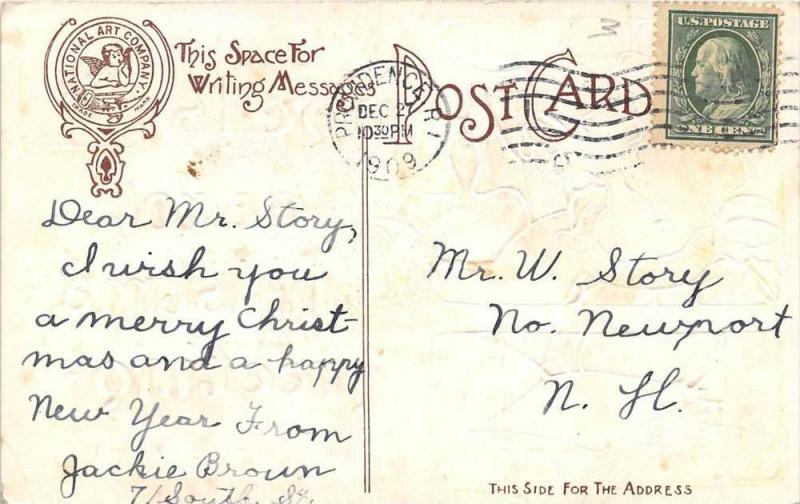 NATIONAL ART COMPANY.
TRADE MARK
This Space For
Writing Messages
POST CARD
PROVIDENCE R.I.
DEC 2
10 30 PM
1909
U.S. POSTAGE
ONE CENT
M
Dear Mr. Story,
I wish you
a merry Christ-
mas and a happy
New Year From
Jackie Brown
71 South St.
Mr. W. Story
No. Newport
N. H.
THIS SIDE FOR THE ADDRESS